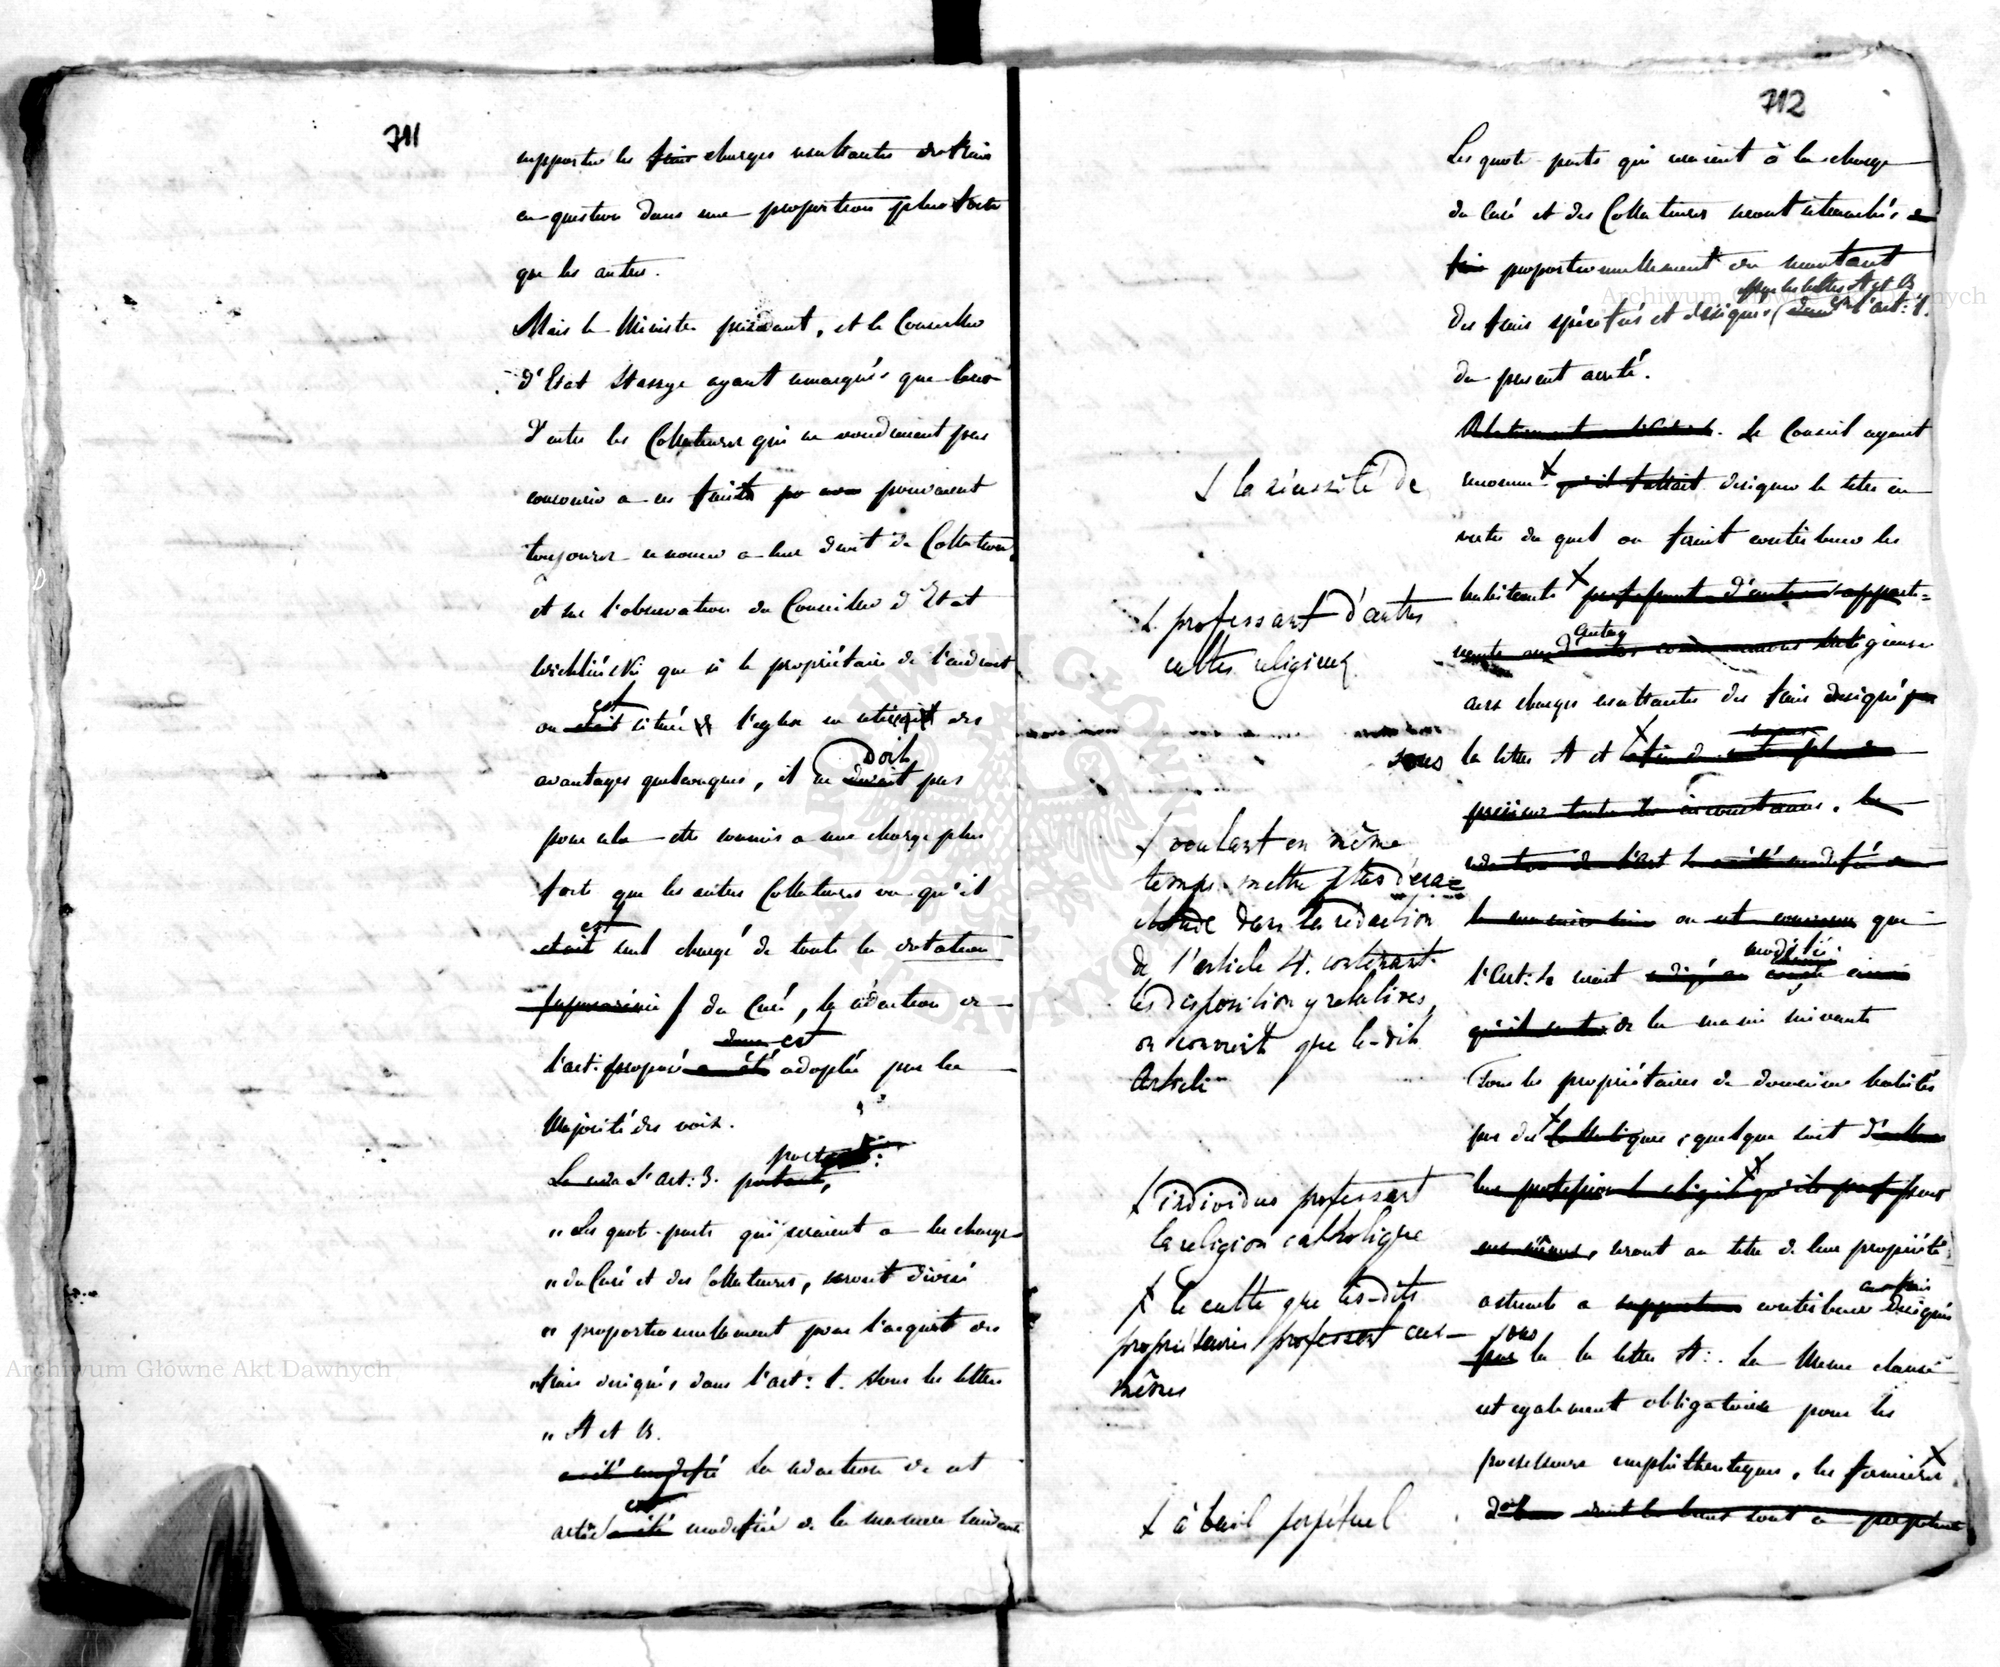 711
supporter les frais charges resultantes des frais
en question dans une proportion plus forte
que les autres.
Mais le Ministre président, et le Conseiller
d'Etat Staszyc ayant remarqués que ceux
d'entre les Collateurs qui ne voudraient pas
concourir a ces frais pouvaient
toujours renoncer a leur droit de Collation,
et sur l'observation du Conseiller d'Etat
que si le propriétaire de l'endroit
est
ou etait situé l'eglise en des
doit
avantages quelconques, il ne devait pas
pour cela etre soumis a une charge plus
forte que les autres Collateurs vu qu'il
est
etait seul chargé de toute la dotation
du Curé, la rédaction de
est
l'art: proposé a été adoptée par la
Majorité des voix.
portant:
L'art: 3. portant,
" Les quot-parts qui seraient a la charge
" du Curé et des Collateurs, seront divisé
" proportionnellement pour l'acquit des
" frais designés dans l'art: 1. sous les lettres
" A et B.
a été modifié La redaction de cet
est
article a été modifiée de la maniere suivante
712
Les quote-parts qui seraient à la charge
du Curé et des Collateurs seront
proportionnellement au montant
lettres A et B
des frais et désignés dans l'art: 1.
du present arrêté.
Le Conseil ayant
reconnu qu'il fallait designer le titre en
vertu du quel on ferait contribuer les
habitants professant d'autres apparte=
autres
religieuses
aux charges resultantes des frais designé par
la lettre A et
preciser toutes les circonstances. La
redaction de l'art 4 a été modifié
ou est convenu que
modifié
l'Art: 4 serait
de la maniere suivante
Tous les propriétaires de domaines habités
par des Catholiques, quelque soit
leur profession qu'ils professent
eux mêmes, seront au titre de leur propriété
aux frais
astreints a supporter contribuer designés
sous
par la lettre A. La Meme clause
est egalement obligatoire pour les
possesseurs emphithéotiques, les fermiers
dont les baux sont a perpetuité
la nécessité de
professant d'autres
cultes religieux
sous
voulant en même
temps mettre plus d'exac=
titude dans la rédaction
de l'article 4. contenant
les disposition y relatives,
on convint que le-dit
Article
individus professant
la religion catholique
le culte que les-dits
propriétaires professent eux-
mêmes
à bail perpétuel
Archiwum Główne Akt Dawnych
Archiwum Główne Akt Dawnych
ARCHIWUM GŁÓWNE AKT DAWNYCH